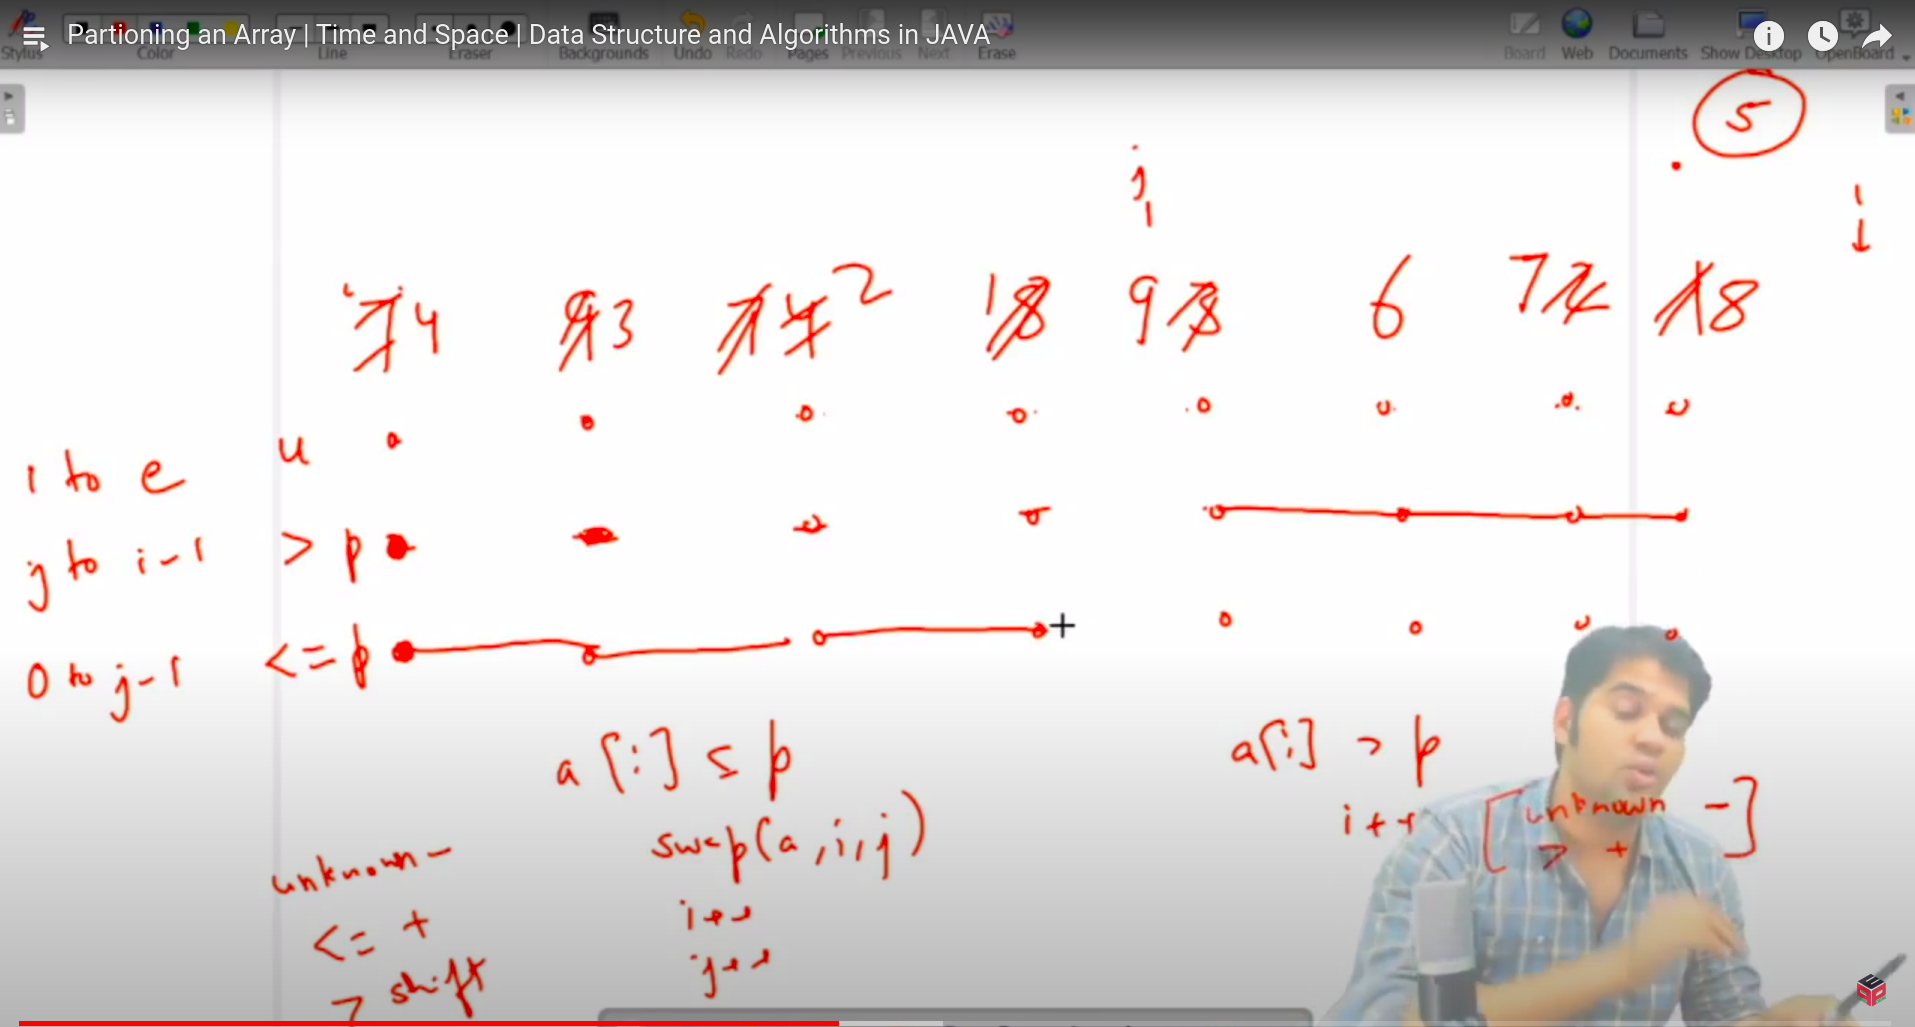 Partioning an Array | Time and Space | Data Structure and Algorithms in JAVA
Stylus Color Line Eraser Backgrounds Undo Redo Pages Previous Next Erase Board Web Documents Show Desktop OpenBoard
5
j
i
4 3 2 1 9 6 7 8
i to e u
j to i-1 > p
0 to j-1 <= p
a[i] ≤ p
a[i] > p
swap(a,i,j)
i++ [unknown -
> +]
unknown -
i++
<= +
j++
> shift